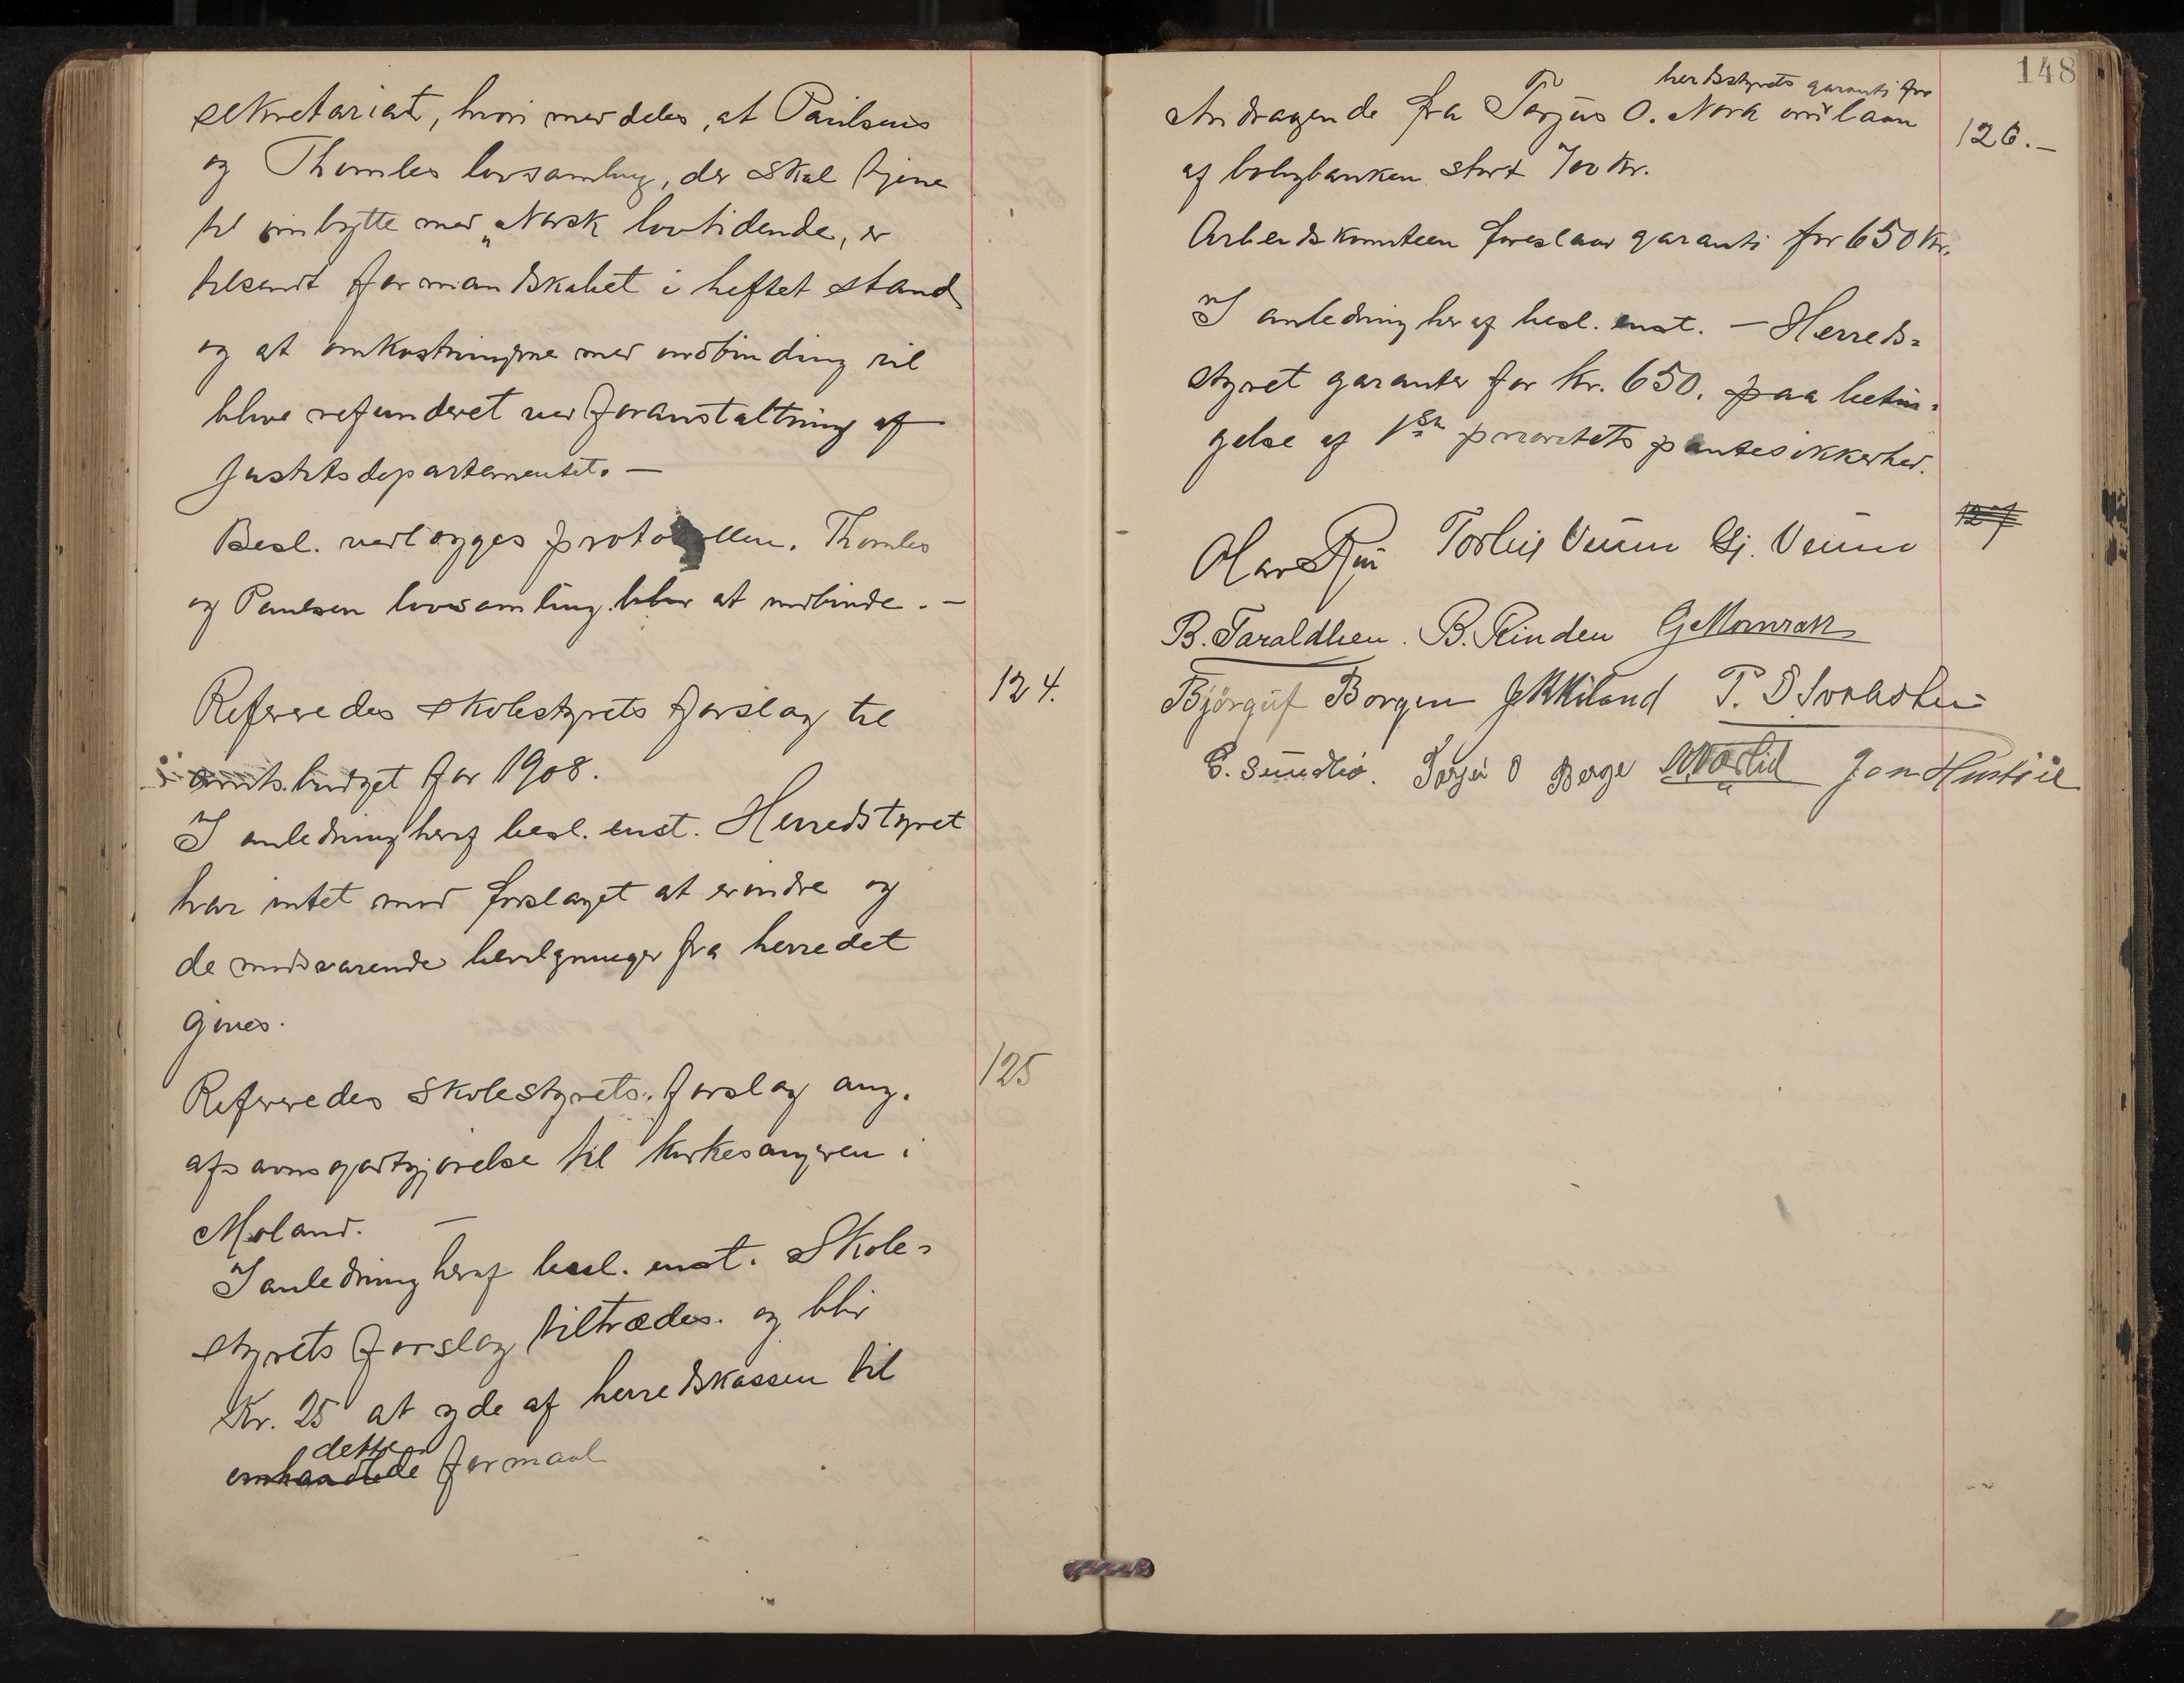 sekretariat, hvori meddeles, at Paulsens
og Thomles lovsamling, der skal tjene
til ombytte med „Norsk lovtidende, er
tilsendt formandskabet i heftet stand
og at omkostningerne med indbinding vil
blive refunderet ved foranstaltning af
Justitsdepartementet. —
Besl. vedlægges protokollen. Thomles
og Paulsen lovsamling blir at indbinde. —
124.
Refereredes skolestyrets forslag til
budget for 1908.
I anledning heraf besl. enst. Herredstyret
har intet mod forslaget at erindre og
de modsvarende bevilgninger fra herredet
gives.
125
Refereredes skolestyrets forslag ang.
afsavnsgodtgjørelse til kirkesangeren i
Moland. —
I anledning heraf besl. enst. Skole-
styrets forslag tiltrædes og blir
Kr. 25 at yde af herredskassen til
dette
omhandlede formaal
148
herdsstyrets garanti for
Andragende fra Torjus O. Nordbø om laan
126.—
af boligbanken stort 700 Kr.
Arbeidskomiteen foreslaar garanti for 650 Kr.
I anledning heraf besl. enst. — Herreds-
styret garanter for Kr. 650. paa betin-
gelse af 1ste prioritets pantesikkerhed.
127
Olav Torleiv Veum Gj. Veum
B. Taraldlien. B. Rinden G. Momrak
Bjørgúf Borgen J. K. Kiland P. D.
G. Sundbø. Torjei O Berge Jon